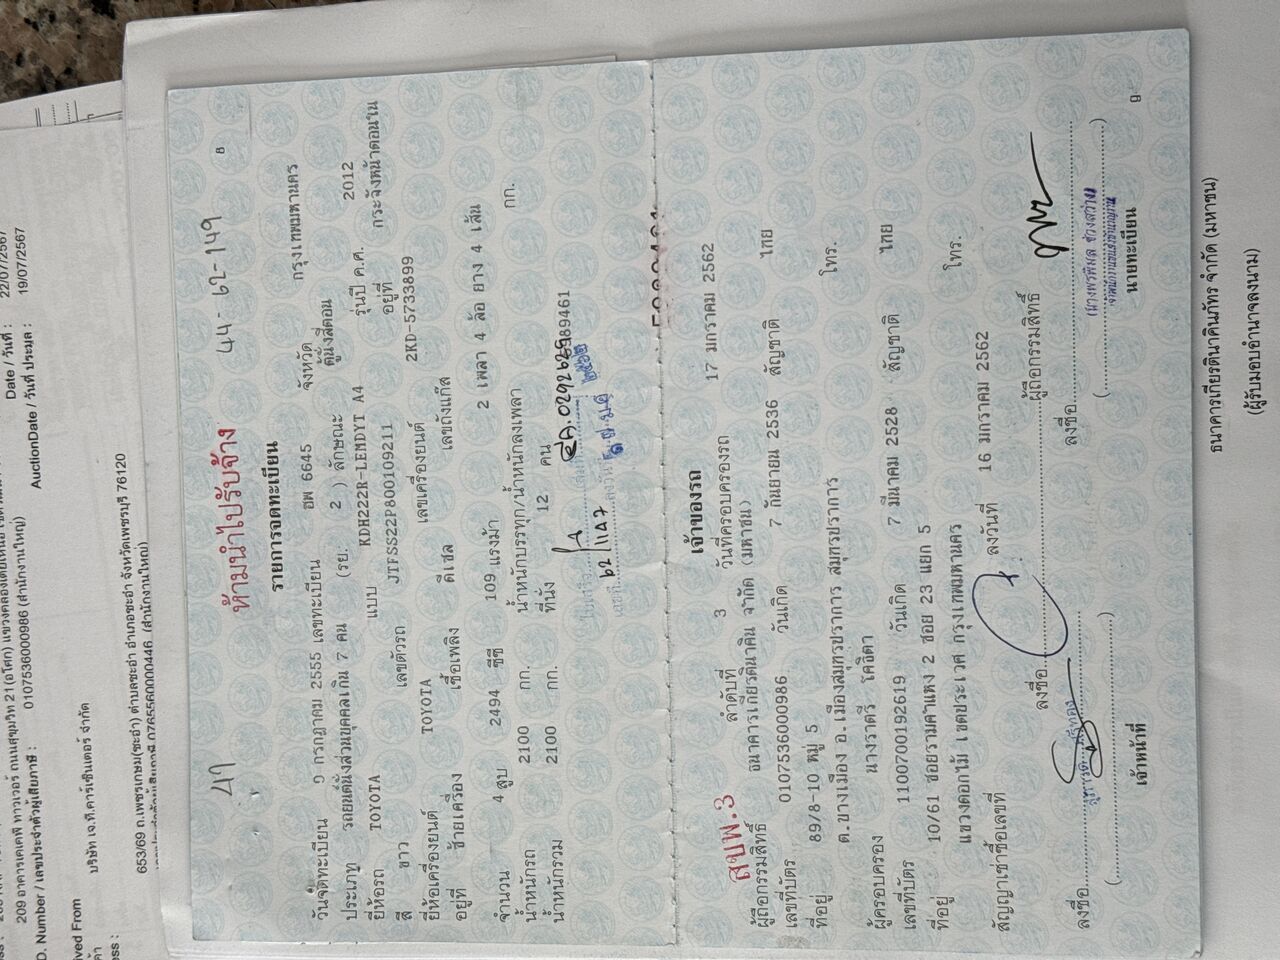 Date / วันที่ : 22/07/2567
209 อาคารเคเคพี ทาวเวอร์ ถนนสุขุมวิท 21(อโศก) แขวงคลองเตยเหนือ
D. Number / เลขประจำตัวผู้เสียภาษี : 0107536000986 (สำนักงานใหญ่)
AuctionDate / วันที่ ประมูล : 19/07/2567
ived From
บริษัท เจ.ที.คาร์เซ็นเตอร์ จำกัด
ess :
653/69 ถ.เพชรเกษม(ชะอำ) ตำบลชะอำ อำเภอชะอำ จังหวัดเพชรบุรี 76120
0765560000446 (สำนักงานใหญ่)
47 ห้ามนำไปรับจ้าง 44-62-149
8
รายการจดทะเบียน
วันจดทะเบียน 9 กรกฎาคม 2555 เลขทะเบียน ฮพ 6645 จังหวัด กรุงเทพมหานคร
ประเภท รถยนต์นั่งส่วนบุคคลเกิน 7 คน (รย. 2 ) ลักษณะ ตู้นั่งสี่ตอน
ยี่ห้อรถ TOYOTA แบบ KDH222R-LEMDYT A4 รุ่นปี ค.ศ. 2012
สี ขาว เลขตัวรถ JTFSS22P800109211 อยู่ที่ กระจังหน้าตอนใน
ยี่ห้อเครื่องยนต์ TOYOTA เลขเครื่องยนต์ 2KD-5733899
อยู่ที่ ซ้ายเครื่อง เชื้อเพลิง ดีเซล เลขถังแก๊ส
จำนวน 4 สูบ 2494 ซีซี 109 แรงม้า 2 เพลา 4 ล้อ ยาง 4 เส้น
น้ำหนักรถ 2100 กก. น้ำหนักบรรทุก/น้ำหนักลงเพลา กก.
น้ำหนักรวม 2100 กก. ที่นั่ง 12 คน
62/1147
เจ้าของรถ
สบพ.3
ลำดับที่ 3 วันที่ครอบครองรถ 17 มกราคม 2562
ผู้ถือกรรมสิทธิ์ ธนาคารเกียรตินาคิน จำกัด (มหาชน)
เลขที่บัตร 0107536000986 วันเกิด 7 กันยายน 2536 สัญชาติ ไทย
ที่อยู่ 89/8-10 หมู่ 5
ต.บางเมือง อ.เมืองสมุทรปราการ สมุทรปราการ โทร.
ผู้ครอบครอง นางราตรี โคจิตา
เลขที่บัตร 1100700192619 วันเกิด 7 มีนาคม 2528 สัญชาติ ไทย
ที่อยู่ 10/61 ซอยรามคำแหง 2 ซอย 23 แยก 5
แขวงดอกไม้ เขตประเวศ กรุงเทพมหานคร โทร.
สัญญาเช่าซื้อเลขที่ ลงวันที่ 16 มกราคม 2562
ลงชื่อ ผู้ถือกรรมสิทธิ์
ลงชื่อ
ลงชื่อ
เจ้าหน้าที่
นายทะเบียน
9
ธนาคารเกียรตินาคินภัทร จำกัด (มหาชน)
(ผู้รับมอบอำนาจลงนาม)